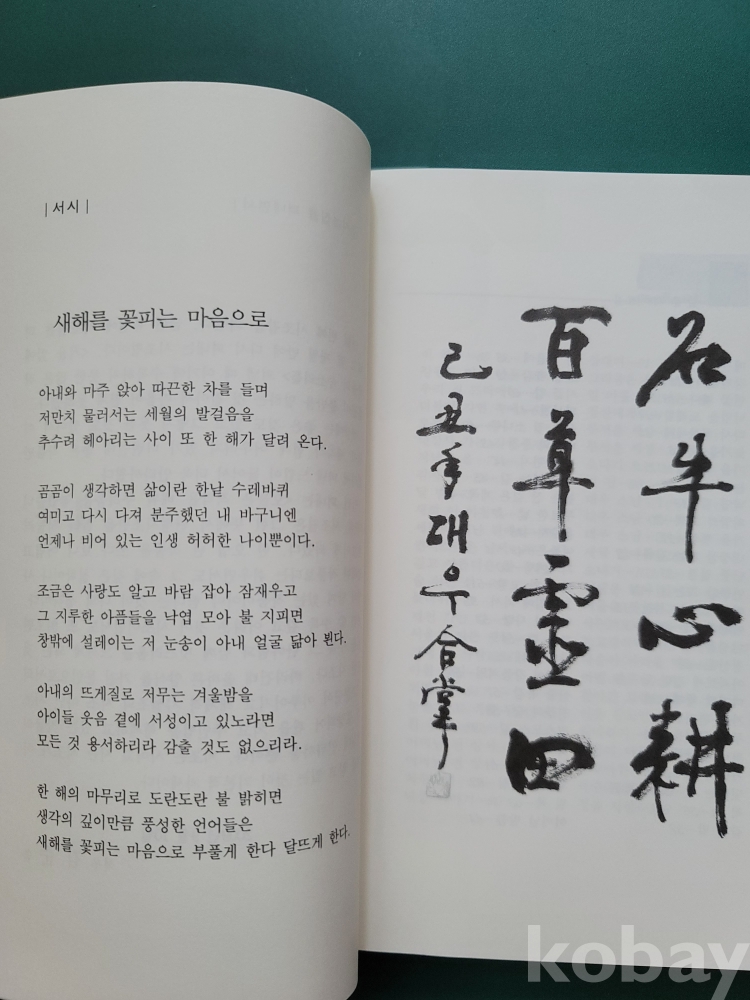 |서시|
새해를 꽃피는 마음으로
아내와 마주 앉아 따끈한 차를 들며
저만치 물러서는 세월의 발걸음을
추수려 헤아리는 사이 또 한 해가 달려 온다.
곰곰이 생각하면 삶이란 한낱 수레바퀴
여미고 다시 다져 분주했던 내 바구니엔
언제나 비어 있는 인생 허허한 나이뿐이다.
조금은 사랑도 알고 바람 잡아 잠재우고
그 지루한 아픔들을 낙엽 모아 불 지피면
창밖에 설레이는 저 눈송이 아내 얼굴 닮아 뵌다.
아내의 뜨게질로 저무는 겨울밤을
아이들 웃음 곁에 서성이고 있노라면
모든 것 용서하리라 감출 것도 없으리라.
한 해의 마무리로 도란도란 불 밝히면
생각의 깊이만큼 풍성한 언어들은
새해를 꽃피는 마음으로 부풀게 한다 달뜨게 한다.
石牛心耕
百草霊田
己丑年 대우 合掌
kobay